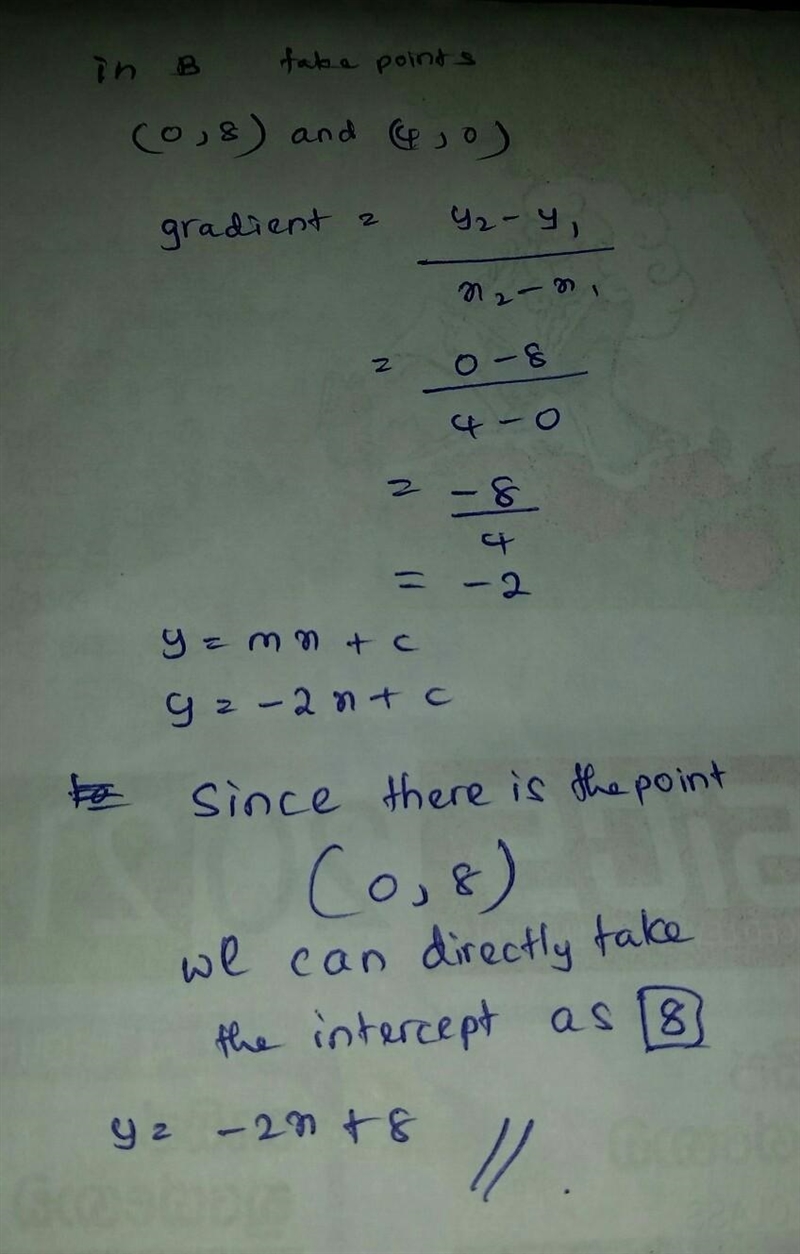 in B take points
(0,8) and (4,0)
gradient = y₂ - y₁
x₂ - x₁
= 0 - 8
4 - 0
= - 8
4
= - 2
y = mx + c
y = - 2x + c
Since there is the point
(0,8)
we can directly take
the intercept as 8
y = - 2x + 8 //.